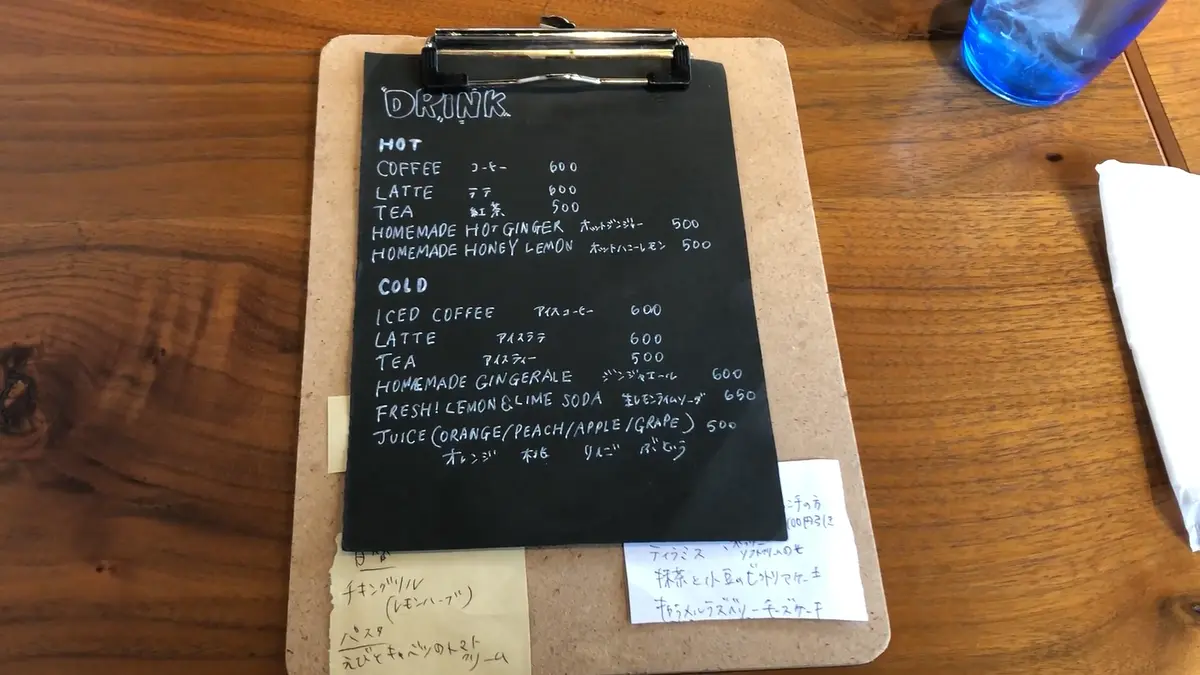 DRINK
HOT
COFFEE コーヒー 600
LATTE ラテ 600
TEA 紅茶 500
HOMEMADE HOT GINGER ホットジンジャー 500
HOMEMADE HONEY LEMON ホットハニーレモン 500
COLD
ICED COFFEE アイスコーヒー 600
LATTE アイスラテ 600
TEA アイスティー 500
HOMEMADE GINGERALE ジンジャエール 600
FRESH! LEMON & LIME SODA 生レモンライムソーダ 650
JUICE (ORANGE/PEACH/APPLE/GRAPE) 500
オレンジ 桃 りんご ぶどう
チキングリル
(レモンハーブ)
パスタ
えびとキャベツのトマト
クリーム
の方
100円引き
ティラミス
抹茶と小豆の
チーズケーキ